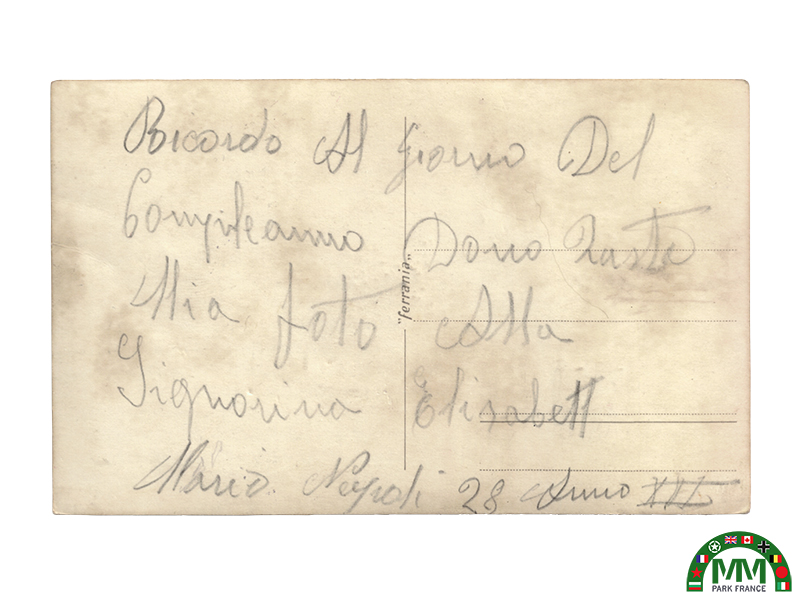 Ricordo Al Giorno Del
Compileanno Dono Questa
Mia foto Alla
Signorina Elisabett
Mario Napoli 28 Anno XII
"ferrania"
MM
PARK FRANCE